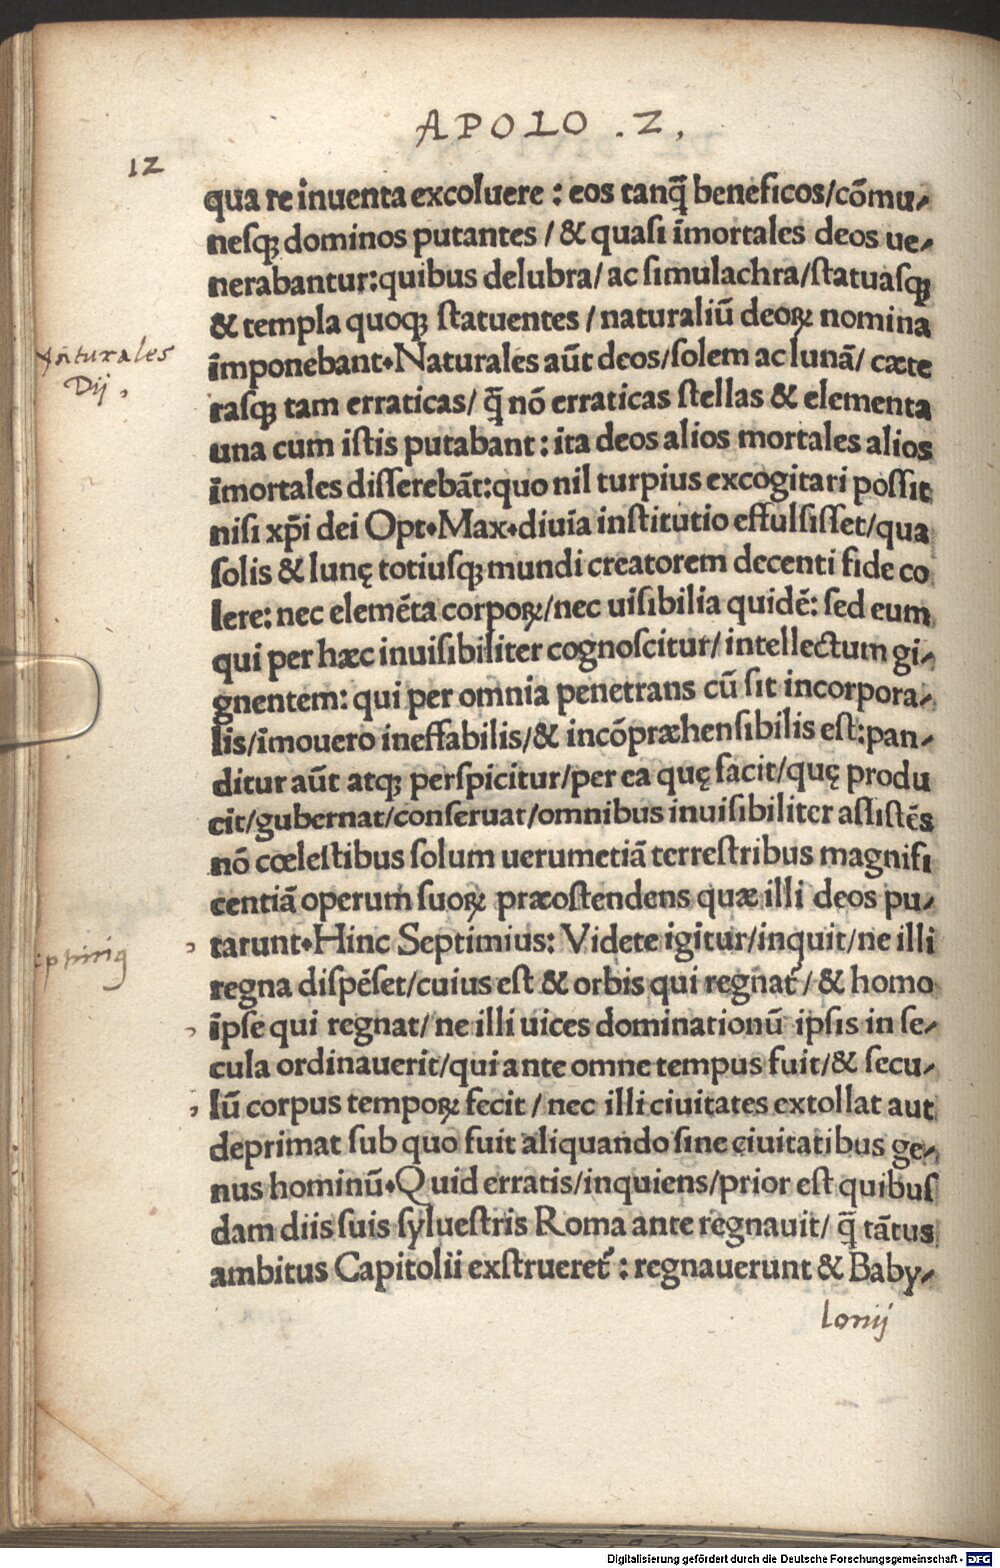 APOLO . Z ,
12
qua re inuenta excoluere : eos tanq̃ beneficos/cõmu-
nesqꝫ dominos putantes / & quasi ĩmortales deos ue-
nerabantur:quibus delubra/ ac simulachra/statuasqꝫ
& templa quoqꝫ statuentes / naturaliũ deoꝝ nomina
ĩmponebant.Naturales aũt deos/solem ac lunã/ cæte
rasqꝫ tam erraticas/ q̃ nõ erraticas stellas & elementa
una cum istis putabant : ita deos alios mortales alios
ĩmortales disserebãt:quo nil turpius excogitari possit
nisi xp̃i dei Opt.Max.diuĩa institutio effulsisset/qua
solis & lunę totiusqꝫ mundi creatorem decenti fide co
lere: nec elemẽta corpoꝝ/nec uisibilia quidẽ: sed eum
qui per hæc inuisibiliter cognoscitur/ intellectum gi-
gnentem: qui per omnia penetrans cũ sit incorpora-
lis/ĩmouero ineffabilis/& incõpræhensibilis est:pan-
ditur aũt atqꝫ perspicitur/per ea quę facit/quę produ
cit/gubernat/conseruat/omnibus inuisibiliter assistẽs
nõ cœlestibus solum uerumetiã terrestribus magnifi
centiã operum suoꝝ præostendens quæ illi deos pu-
tarunt.Hinc Septimius: Videte igitur/inquit/ne illi
regna dispẽset/cuius est & orbis qui regnat᷑ / & homo
ĩpse qui regnat/ ne illi uices dominationũ ipsis in se-
cula ordinauerit/qui ante omne tempus fuit/& secu-
lũ corpus tempoꝝ fecit / nec illi ciuitates extollat aut
deprimat sub quo fuit aliquando sine ciuitatibus ge-
nus hominũ.Quid erratis/inquiens/prior est quibus
dam diis suis syluestris Roma ante regnauit/ q̃ tãtus
ambitus Capitolii exstrueret᷑ : regnauerunt & Baby-
lonij
Naturales
Dij ,
Digitalisierung gefördert durch die Deutsche Forschungsgemeinschaft - DFG